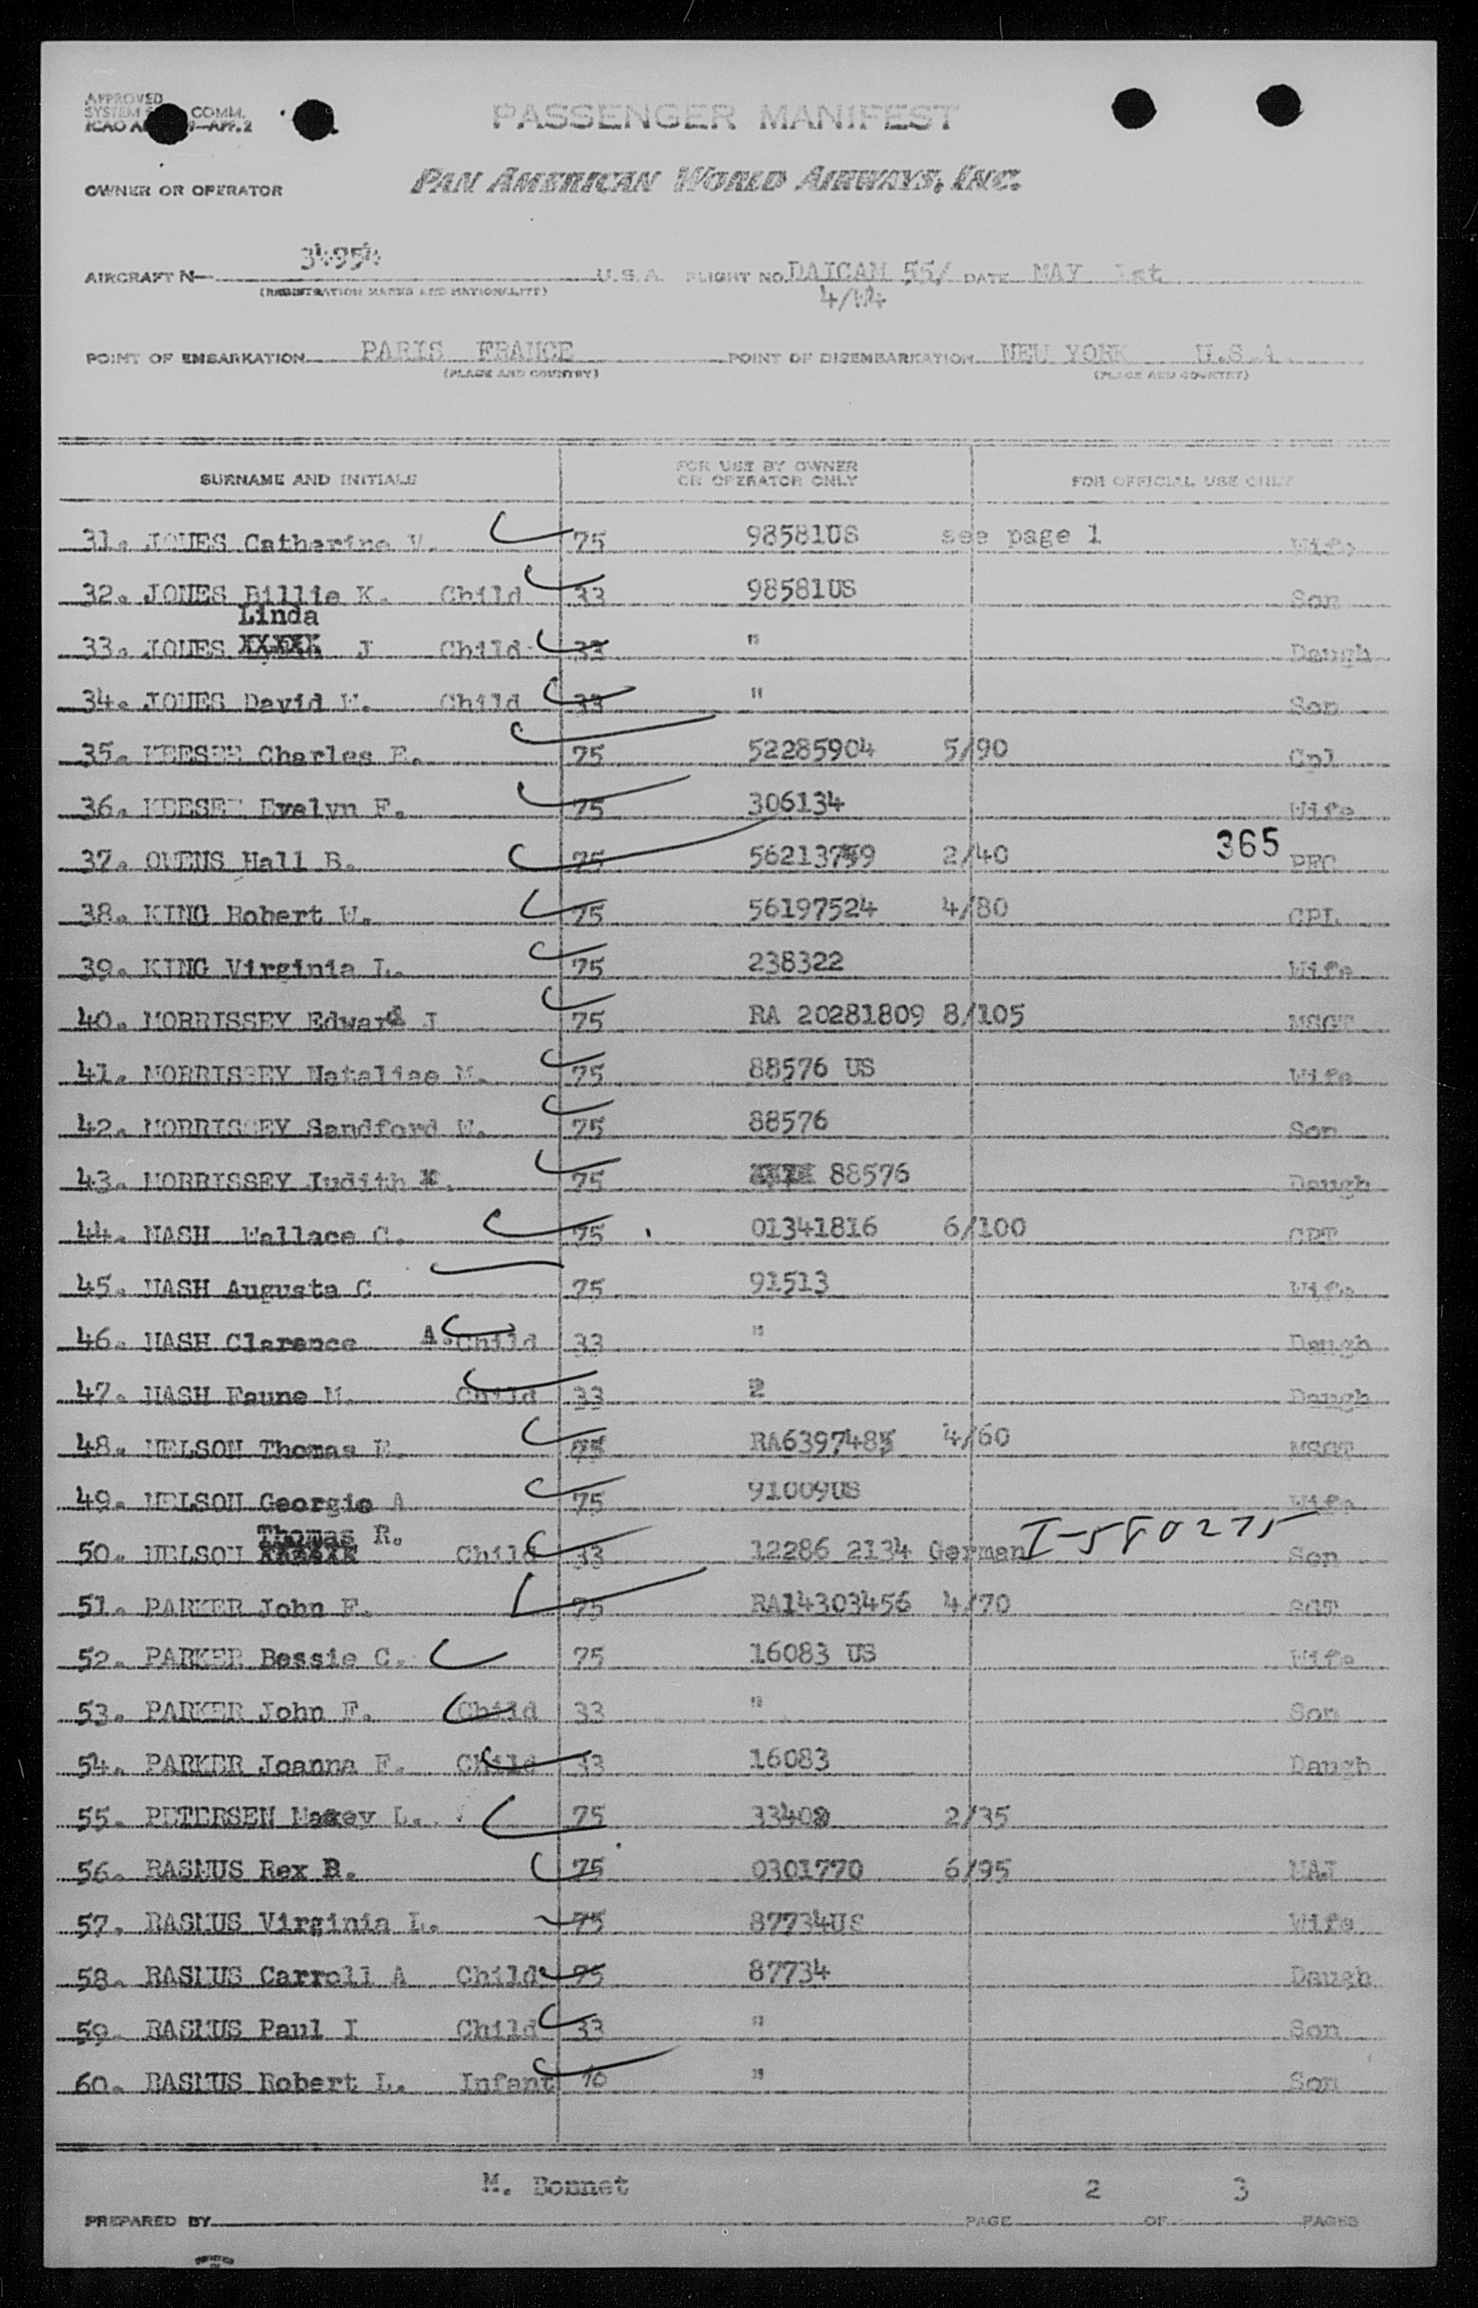 APPROVED
SYSTEM COMM.
ICAO A 9—APP. 2
PASSENGER MANIFEST
OWNER OR OPERATOR PAN AMERICAN WORLD AIRWAYS, INC.
AIRCRAFT N— 34954 U.S.A. FLIGHT NO. DAICAM 55/ DATE MAY 1st
(REGISTRATION MARKS AND NATIONALITY) 4/44
POINT OF EMBARKATION PARIS FRANCE POINT OF DISEMBARKATION NEW YORK U.S.A.
(PLACE AND COUNTRY) (PLACE AND COUNTRY)
SURNAME AND INITIALS FOR USE BY OWNER OR OPERATOR ONLY FOR OFFICIAL USE ONLY
31. JONES Catherine V. 75 98581US see page 1 Wife
32. JONES Billie K. Child 33 98581US Son
Linda
33. JONES XXXXX J Child 33 " Daugh
34. JONES David W. Child 33 " Son
35. KEESEE Charles E. 75 52285904 5/90 Cpl
36. KEESEE Evelyn F. 75 306134 Wife
37. OWENS Hall B. 75 56213759 2/40 365 PFC
38. KING Robert W. 75 56197524 4/80 CPL
39. KING Virginia L. 75 238322 Wife
40. MORRISSEY Edward J 75 RA 20281809 8/105 MSGT
41. MORRISSEY Nataliae M. 75 88576 US Wife
42. MORRISSEY Sandford W. 75 88576 Son
43. MORRISSEY Judith 75 88576 Daugh
44. NASH Wallace C. 75 01341816 6/100 CPT
45. NASH Augusta C 75 91513 Wife
46. NASH Clarence A. Child 33 " Daugh
47. NASH Faune M. Child 33 2 Daugh
48. NELSON Thomas E. 75 RA6397485 4/60 MSGT
49. NELSON Georgie A 75 91009US Wife
Thomas R.
50. NELSON XXXXXX Child 33 12286 2134 German I-580275 Son
51. PARKER John F. 75 RA14303456 4/70 SGT
52. PARKER Bessie C. 75 16083 US Wife
53. PARKER John F. Child 33 " Son
54. PARKER Joanna F. Child 33 16083 Daugh
55. PETERSEN L. 75 33408 2/35
56. RASMUS Rex R. 75 0301770 6/95 MAJ
57. RASMUS Virginia L. 75 87734US Wife
58. RASMUS Carroll A Child 75 87734 Daugh
59. RASMUS Paul I Child 33 " Son
60. RASMUS Robert L. Infant 10 " Son
PREPARED BY M. Bonnet PAGE 2 OF 3 PAGES